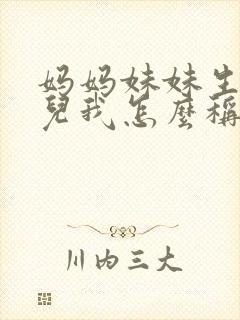 妈妈妹妹生
兒我怎麽稱
川内三大